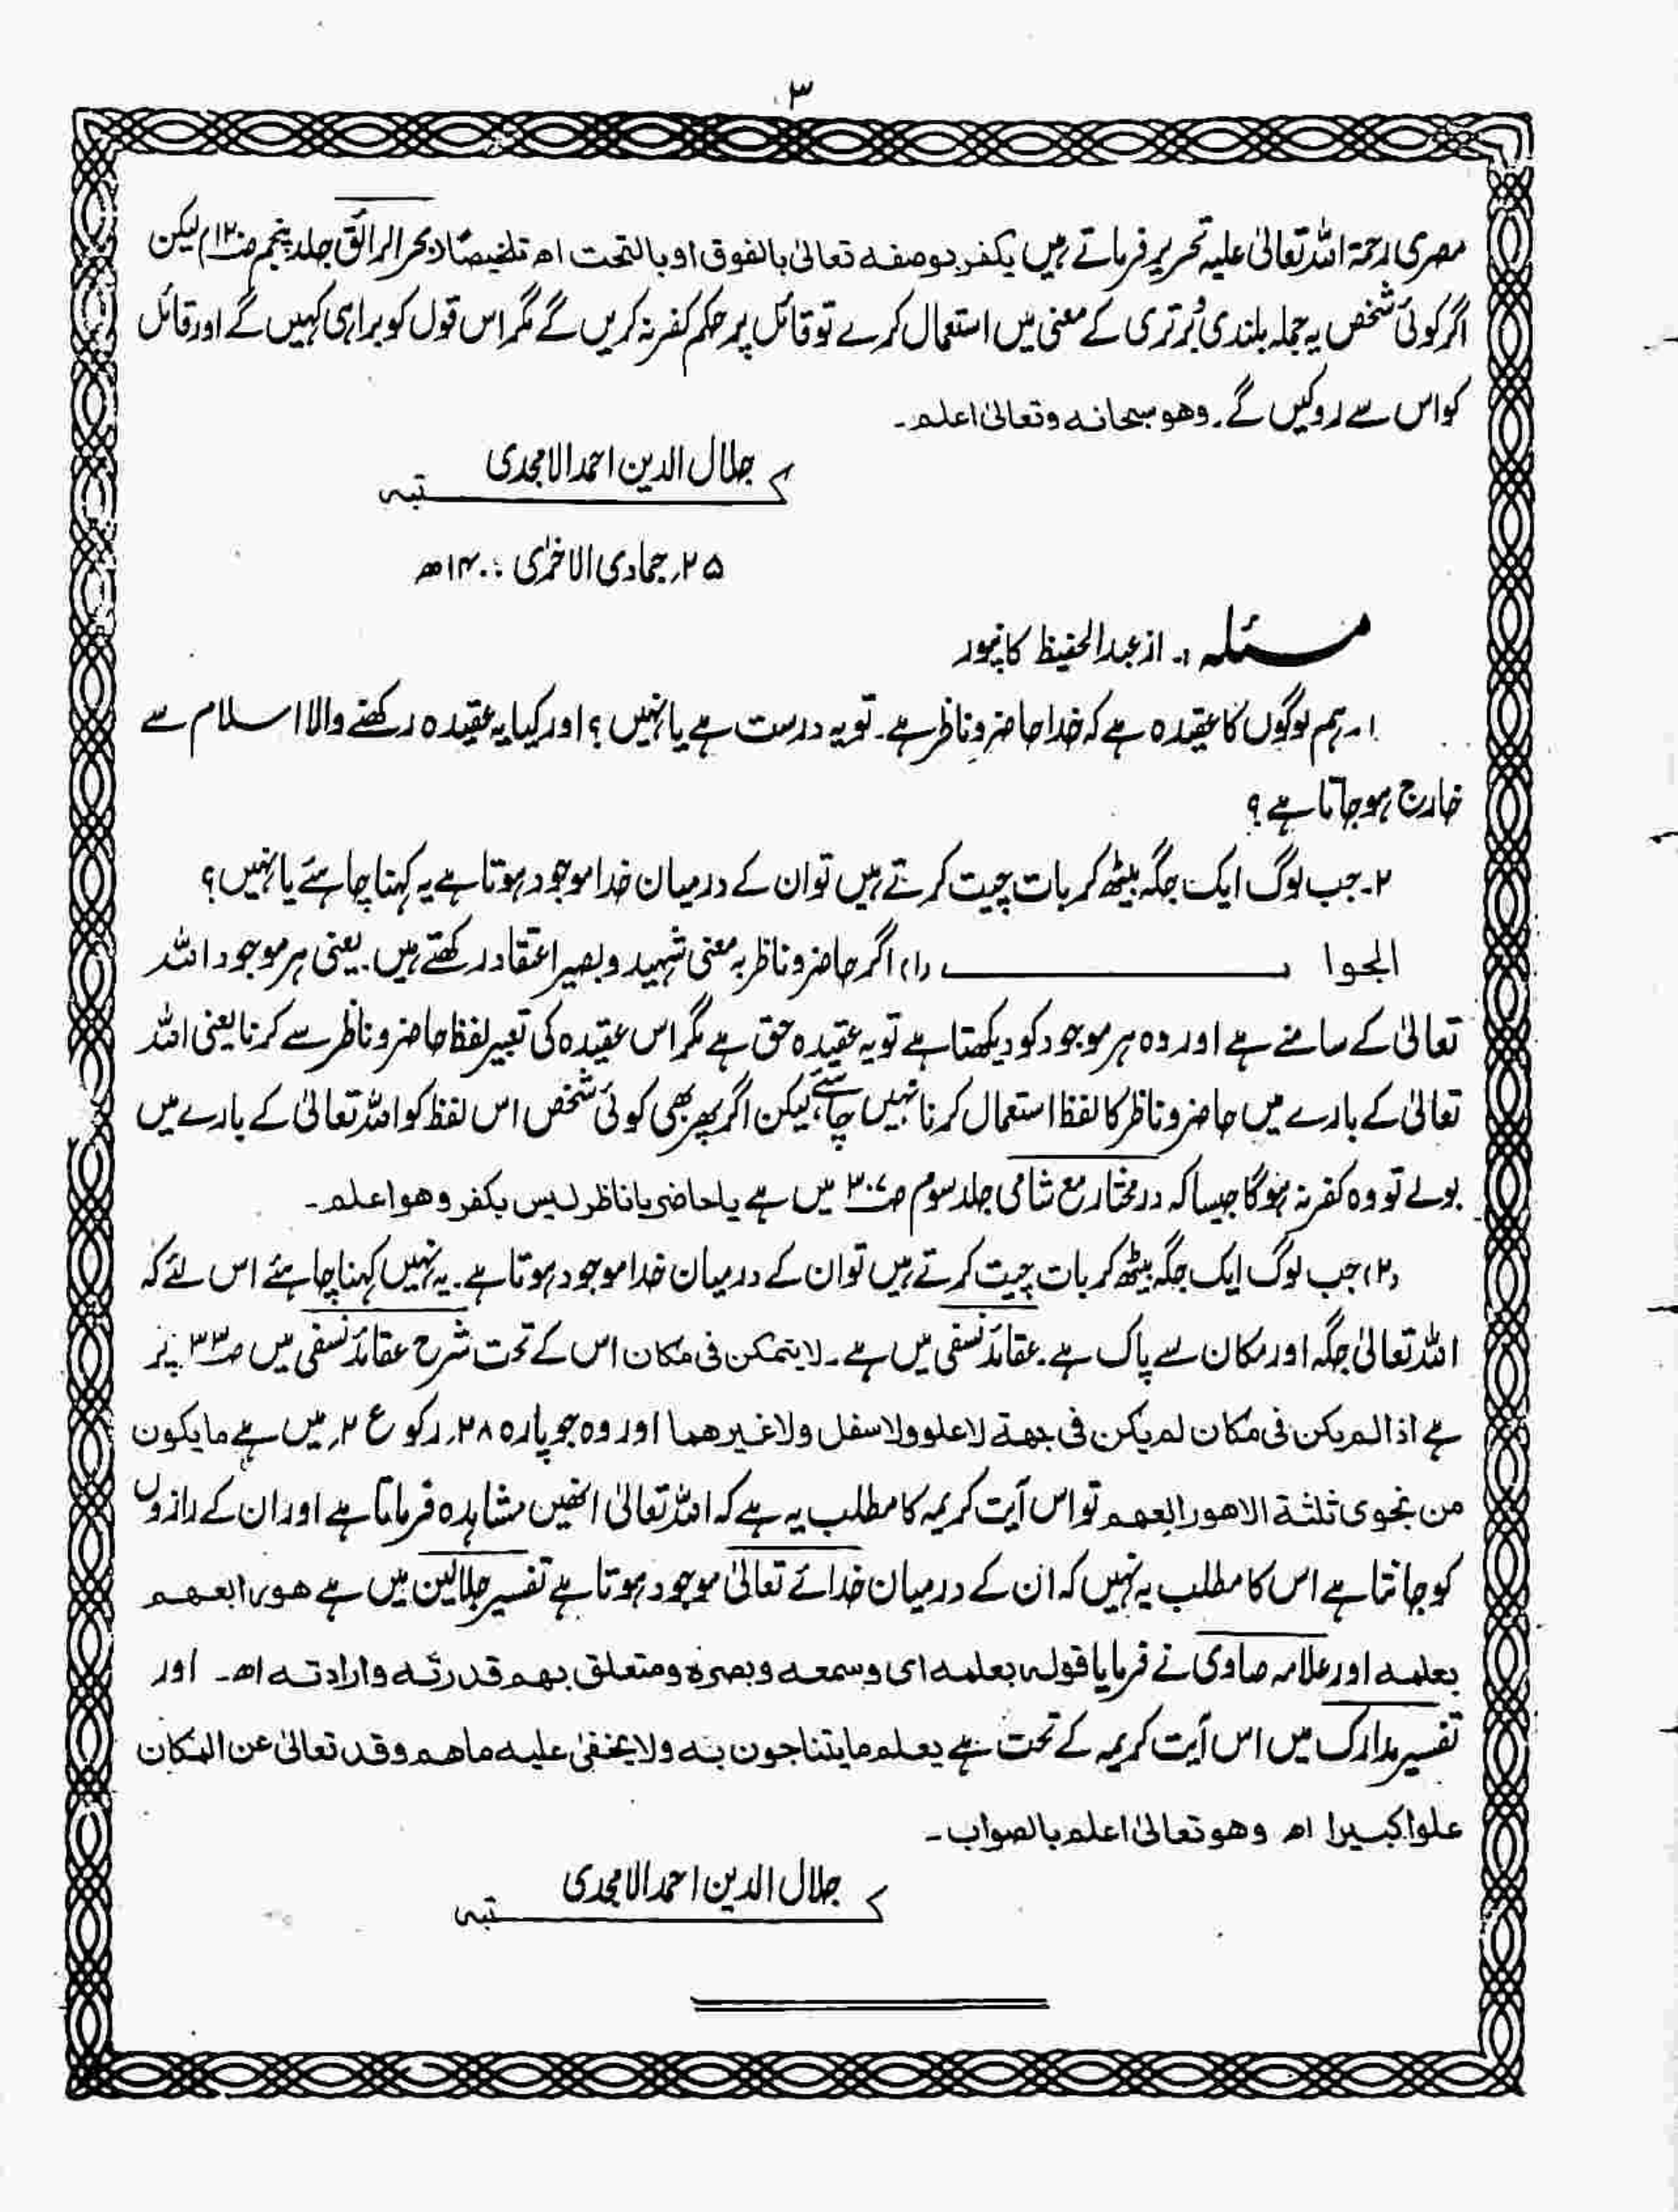 ۳
مصری رحمۃ اللہ تعالیٰ علیہ تحریر فرماتے ہیں یکفر بوصفہ تعالیٰ بالفوق او بالتحت اھ تلخیصًا (بحر الرائق جلد پنجم ص۱۲۰) لیکن
اگر کوئی شخص یہ جملہ بلندی و برتری کے معنی میں استعمال کرے تو قائل پر حکم کفر نہ کریں گے مگر اس قول کو برا ہی کہیں گے اور قائل
کو اس سے روکیں گے۔ وھو سبحانہ وتعالیٰ اعلم۔
کـ جلال الدین احمد الامجدی ـتبہ
۲۵؍ جمادی الاخریٰ ۱۴۰۰ھ
مسئلہ :۔ از عبد الحفیظ کانپور
۱۔ ہم لوگوں کا عقیدہ ہے کہ خدا حاضر و ناظر ہے۔ تو یہ درست ہے یا نہیں ؟ اور کیا یہ عقیدہ رکھنے والا اسلام سے
خارج ہو جاتا ہے ؟
۲۔ جب لوگ ایک جگہ بیٹھ کر بات چیت کرتے ہیں تو ان کے درمیان خدا موجود ہوتا ہے یہ کہنا چاہئے یا نہیں ؟
الجوا ب (۱) اگر حاضر و ناظر بہ معنی شہید و بصیر اعتقاد رکھتے ہیں۔ یعنی ہر موجود اللہ
تعالیٰ کے سامنے ہے اور وہ ہر موجود کو دیکھتا ہے تو یہ عقیدہ حق ہے مگر اس عقیدہ کی تعبیر لفظ حاضر و ناظر سے کرنا یعنی اللہ
تعالیٰ کے بارے میں حاضر و ناظر کا لفظ استعمال کرنا نہیں چاہئے، لیکن اگر پھر بھی کوئی شخص اس لفظ کو اللہ تعالیٰ کے بارے میں
بولے تو وہ کفر نہ ہوگا جیسا کہ درمختار مع شامی جلد سوم ص۳۰۷ میں ہے یا حاضر یا ناظر لیس بکفر وھو اعلم۔
(۲) جب لوگ ایک جگہ بیٹھ کر بات چیت کرتے ہیں تو ان کے درمیان خدا موجود ہوتا ہے۔ یہ نہیں کہنا چاہئے اس لئے کہ
اللہ تعالیٰ جگہ اور مکان سے پاک ہے۔ عقائد نسفی میں ہے۔ لا یتمکن فی مکان اس کے تحت شرح عقائد نسفی میں ص۳۳ پر
ہے اذا لم یکن فی مکان لم یکن فی جھۃ لا علو ولا سفل ولا غیرھما اور وہ جو پارہ ۲۸؍ رکوع ۲؍ میں ہے ما یکون
من نجوی ثلثۃ الا ھو رابعھم تو اس آیت کریمہ کا مطلب یہ ہے کہ اللہ تعالیٰ انھیں مشاہدہ فرماتا ہے اور ان کے رازوں
کو جانتا ہے اس کا مطلب یہ نہیں کہ ان کے درمیان خدائے تعالیٰ موجود ہوتا ہے تفسیر جلالین میں ہے ھو رابعھم
بعلمہ اور علامہ صاوی نے فرمایا قولہ بعلمہ ای وسمعہ وبصرہ ومتعلق بھم قدرتہ وارادتہ اھ۔ اور
تفسیر مدارک میں اس آیت کریمہ کے تحت ہے یعلم ما یتناجون بہ ولا یخفیٰ علیہ ما ھم وقد تعالیٰ عن المکان
علوا کبیرا اھ وھو تعالیٰ اعلم بالصواب۔
کـ جلال الدین احمد الامجدی ـتبہ